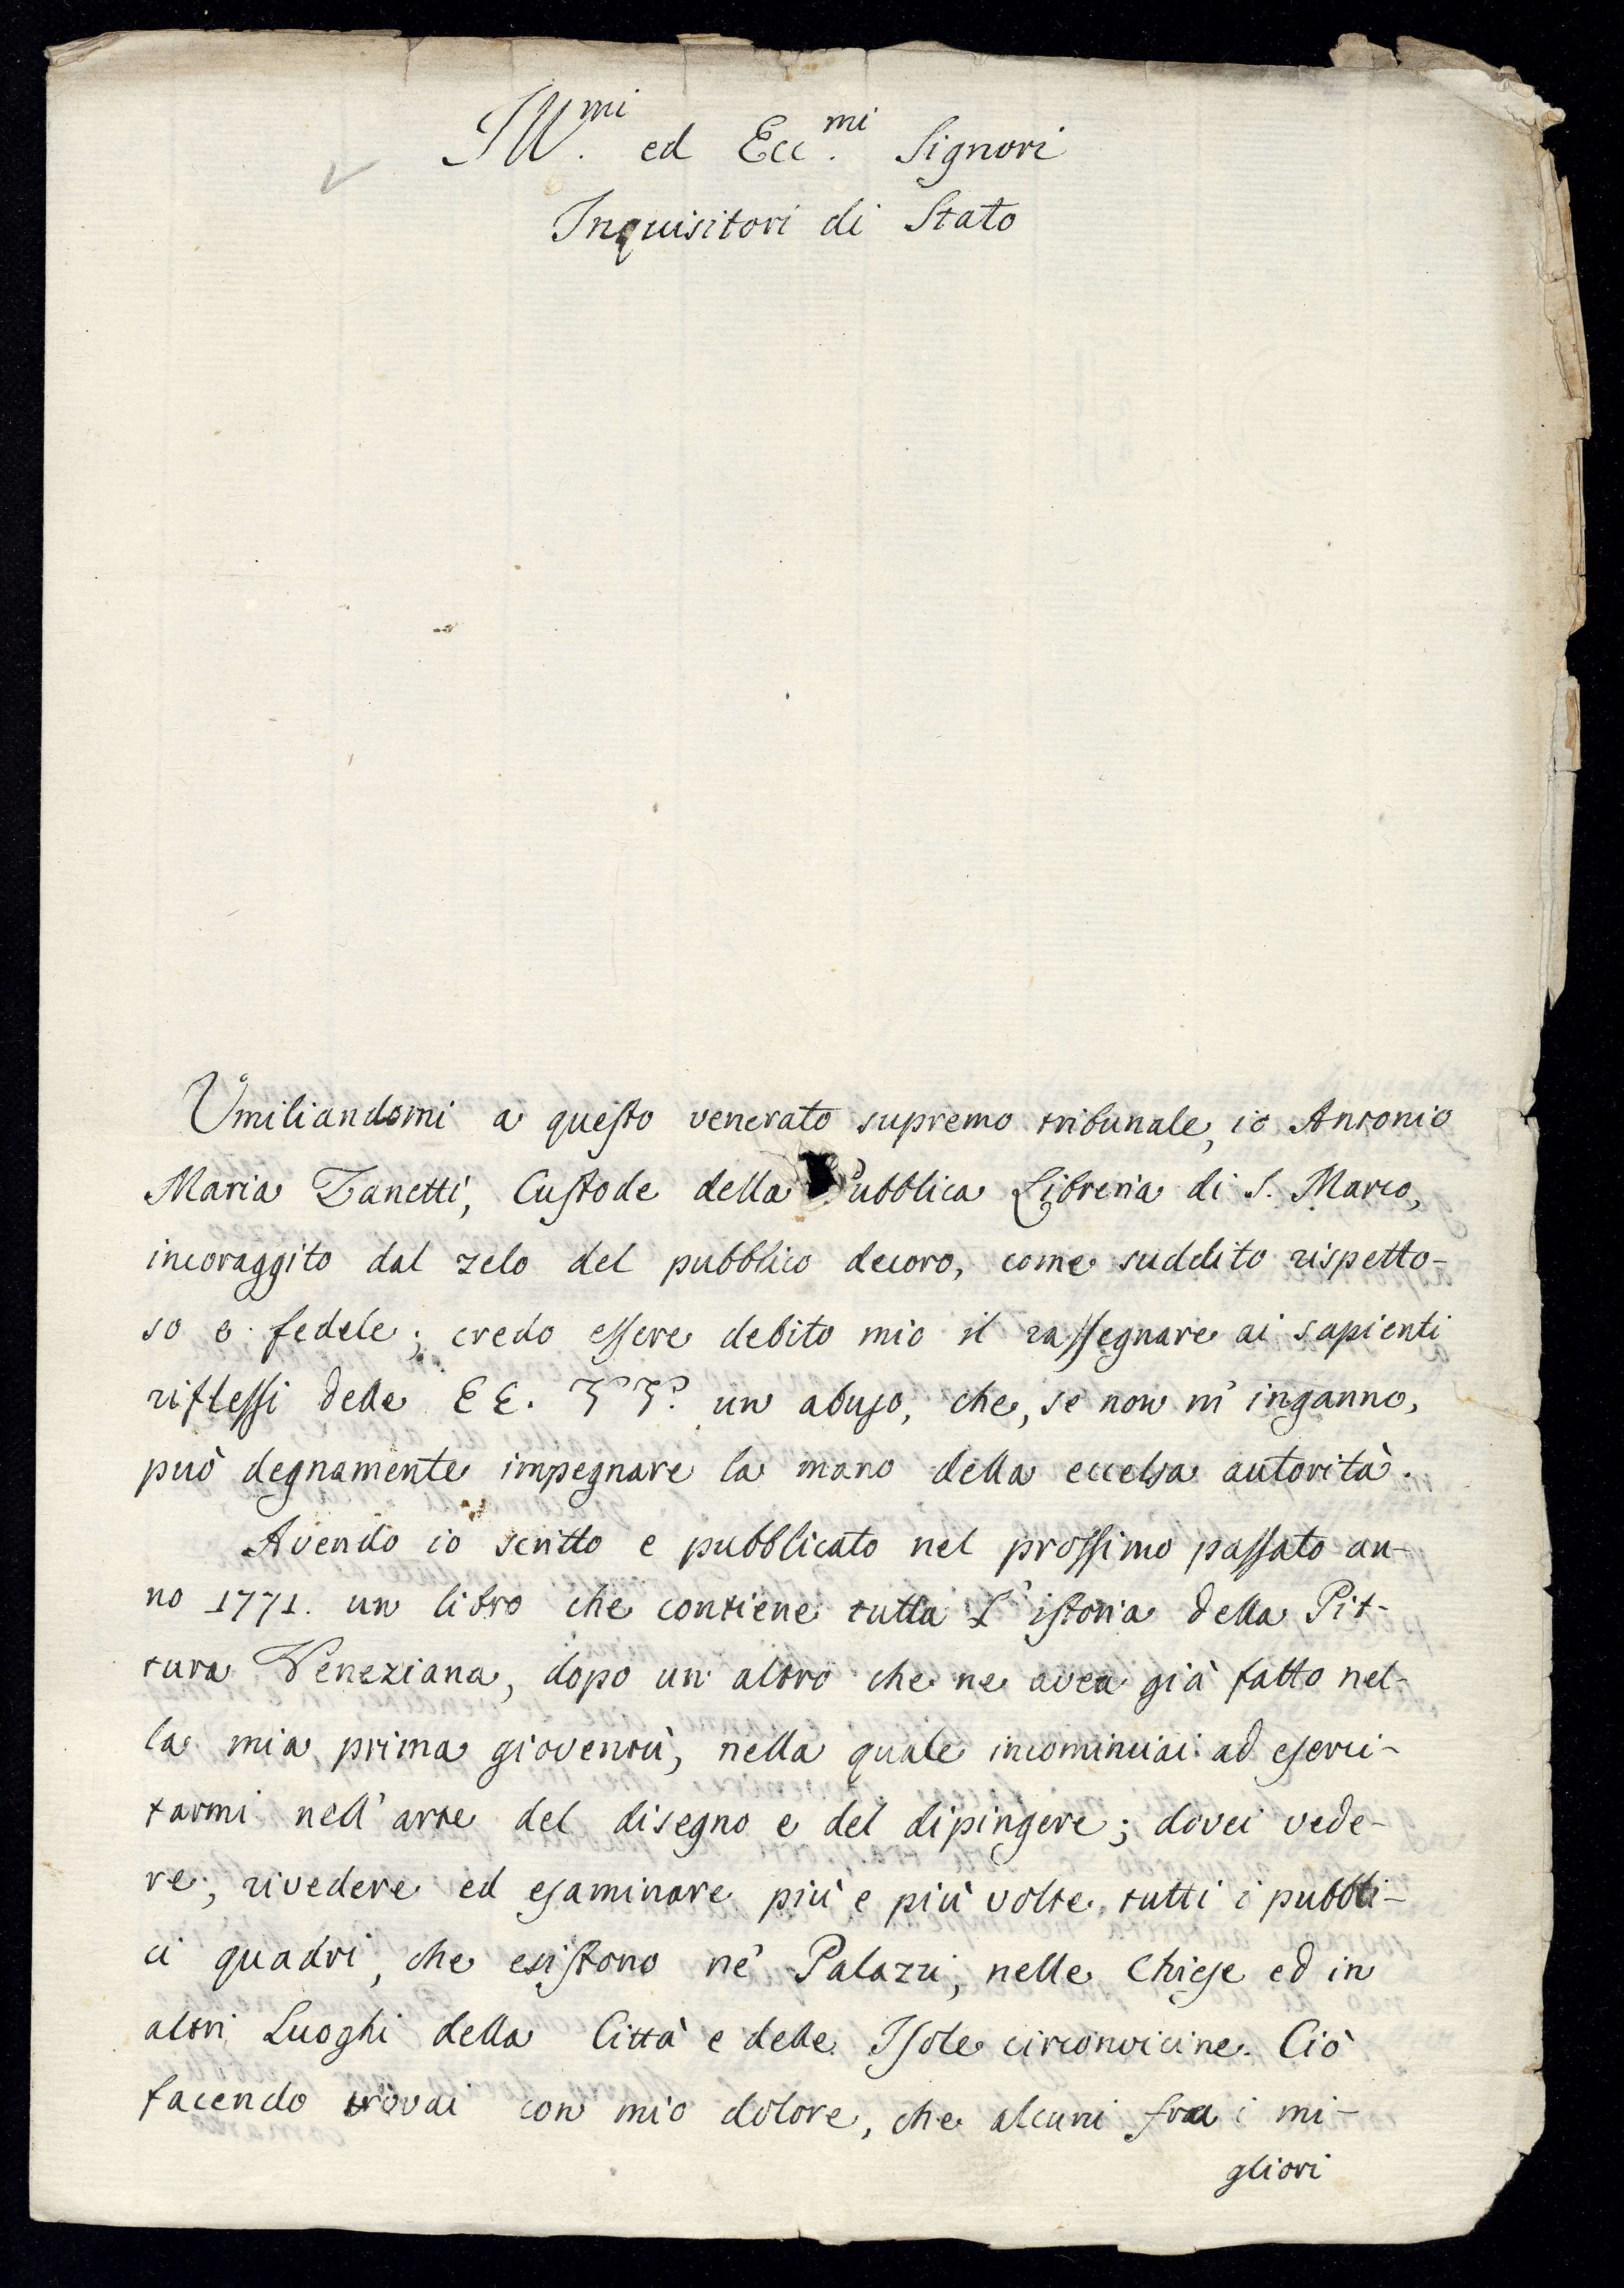 Ill.mi ed Ecc.mi Signori
Inquisitori di Stato
Umiliandomi a questo venerato supremo tribunale, io Antonio
Maria Zanetti, Custode della Pubblica Libreria di S. Marco,
incoraggito dal zelo del pubblico decoro, come suddito rispetto-
so e fedele; credo essere debito mio il rassegnare ai sapienti
riflessi delle EE. VV. un abuso, che, se non m'inganno,
può degnamente impegnare la mano della eccelsa autorità.
Avendo io scritto e pubblicato nel prossimo passato an-
no 1771. un libro che contiene tutta l'istoria della Pit-
tura Veneziana, dopo un altro che ne avea già fatto nel-
la mia prima gioventù, nella quale incominciai ad eserci-
tarmi nell'arte del disegno e del dipingere; dovei vede-
re, rivedere ed esaminare più e più volte tutti i pubbli-
ci quadri, che esistono ne' Palazzi, nelle Chiese ed in
altri Luoghi della Città e delle Isole circonvicine. Ciò
facendo trovai con mio dolore, che alcuni fra i mi-
gliori